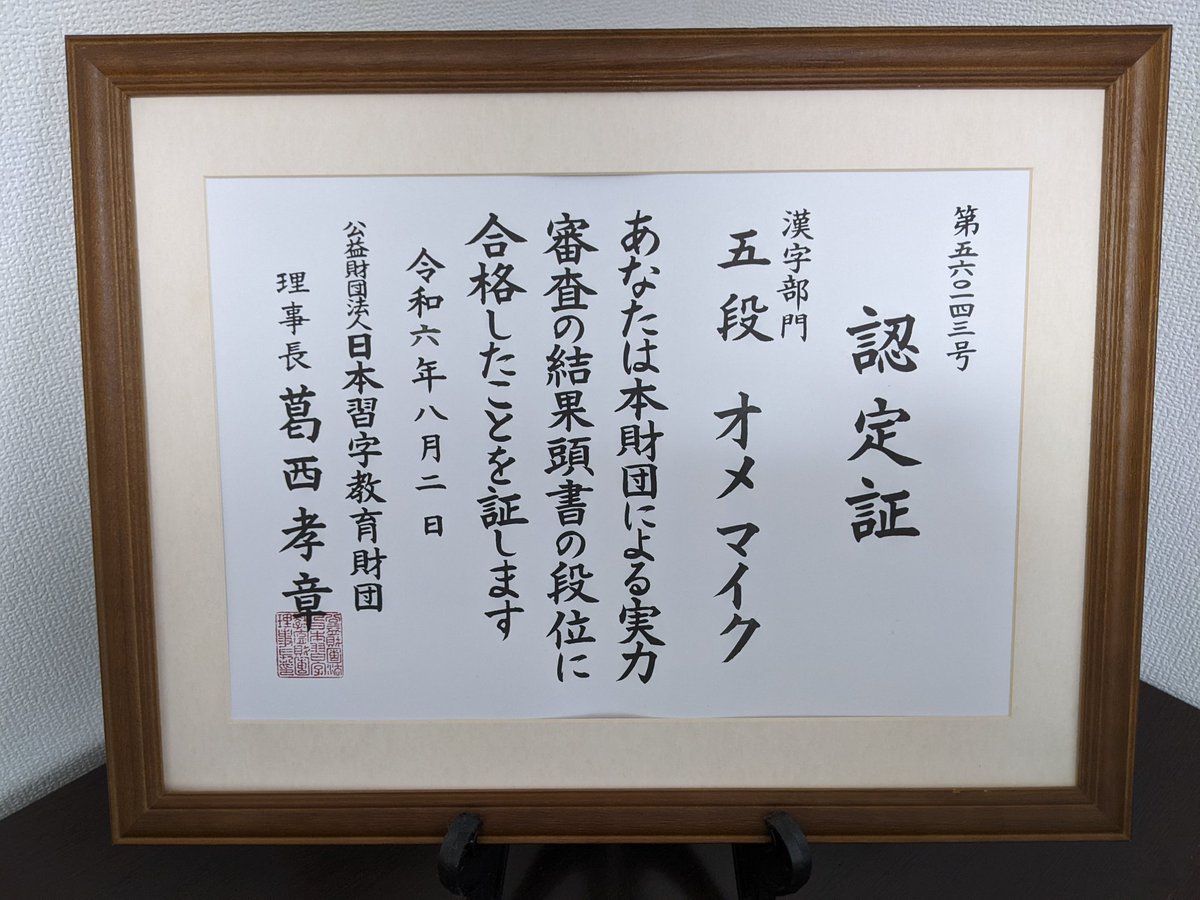 第五六〇一四三号
認定証
漢字部門
五段 オメ マイク
あなたは本財団による実力
審査の結果頭書の段位に
合格したことを証します
令和六年八月二日
公益財団法人日本習字教育財団
理事長 葛西孝章